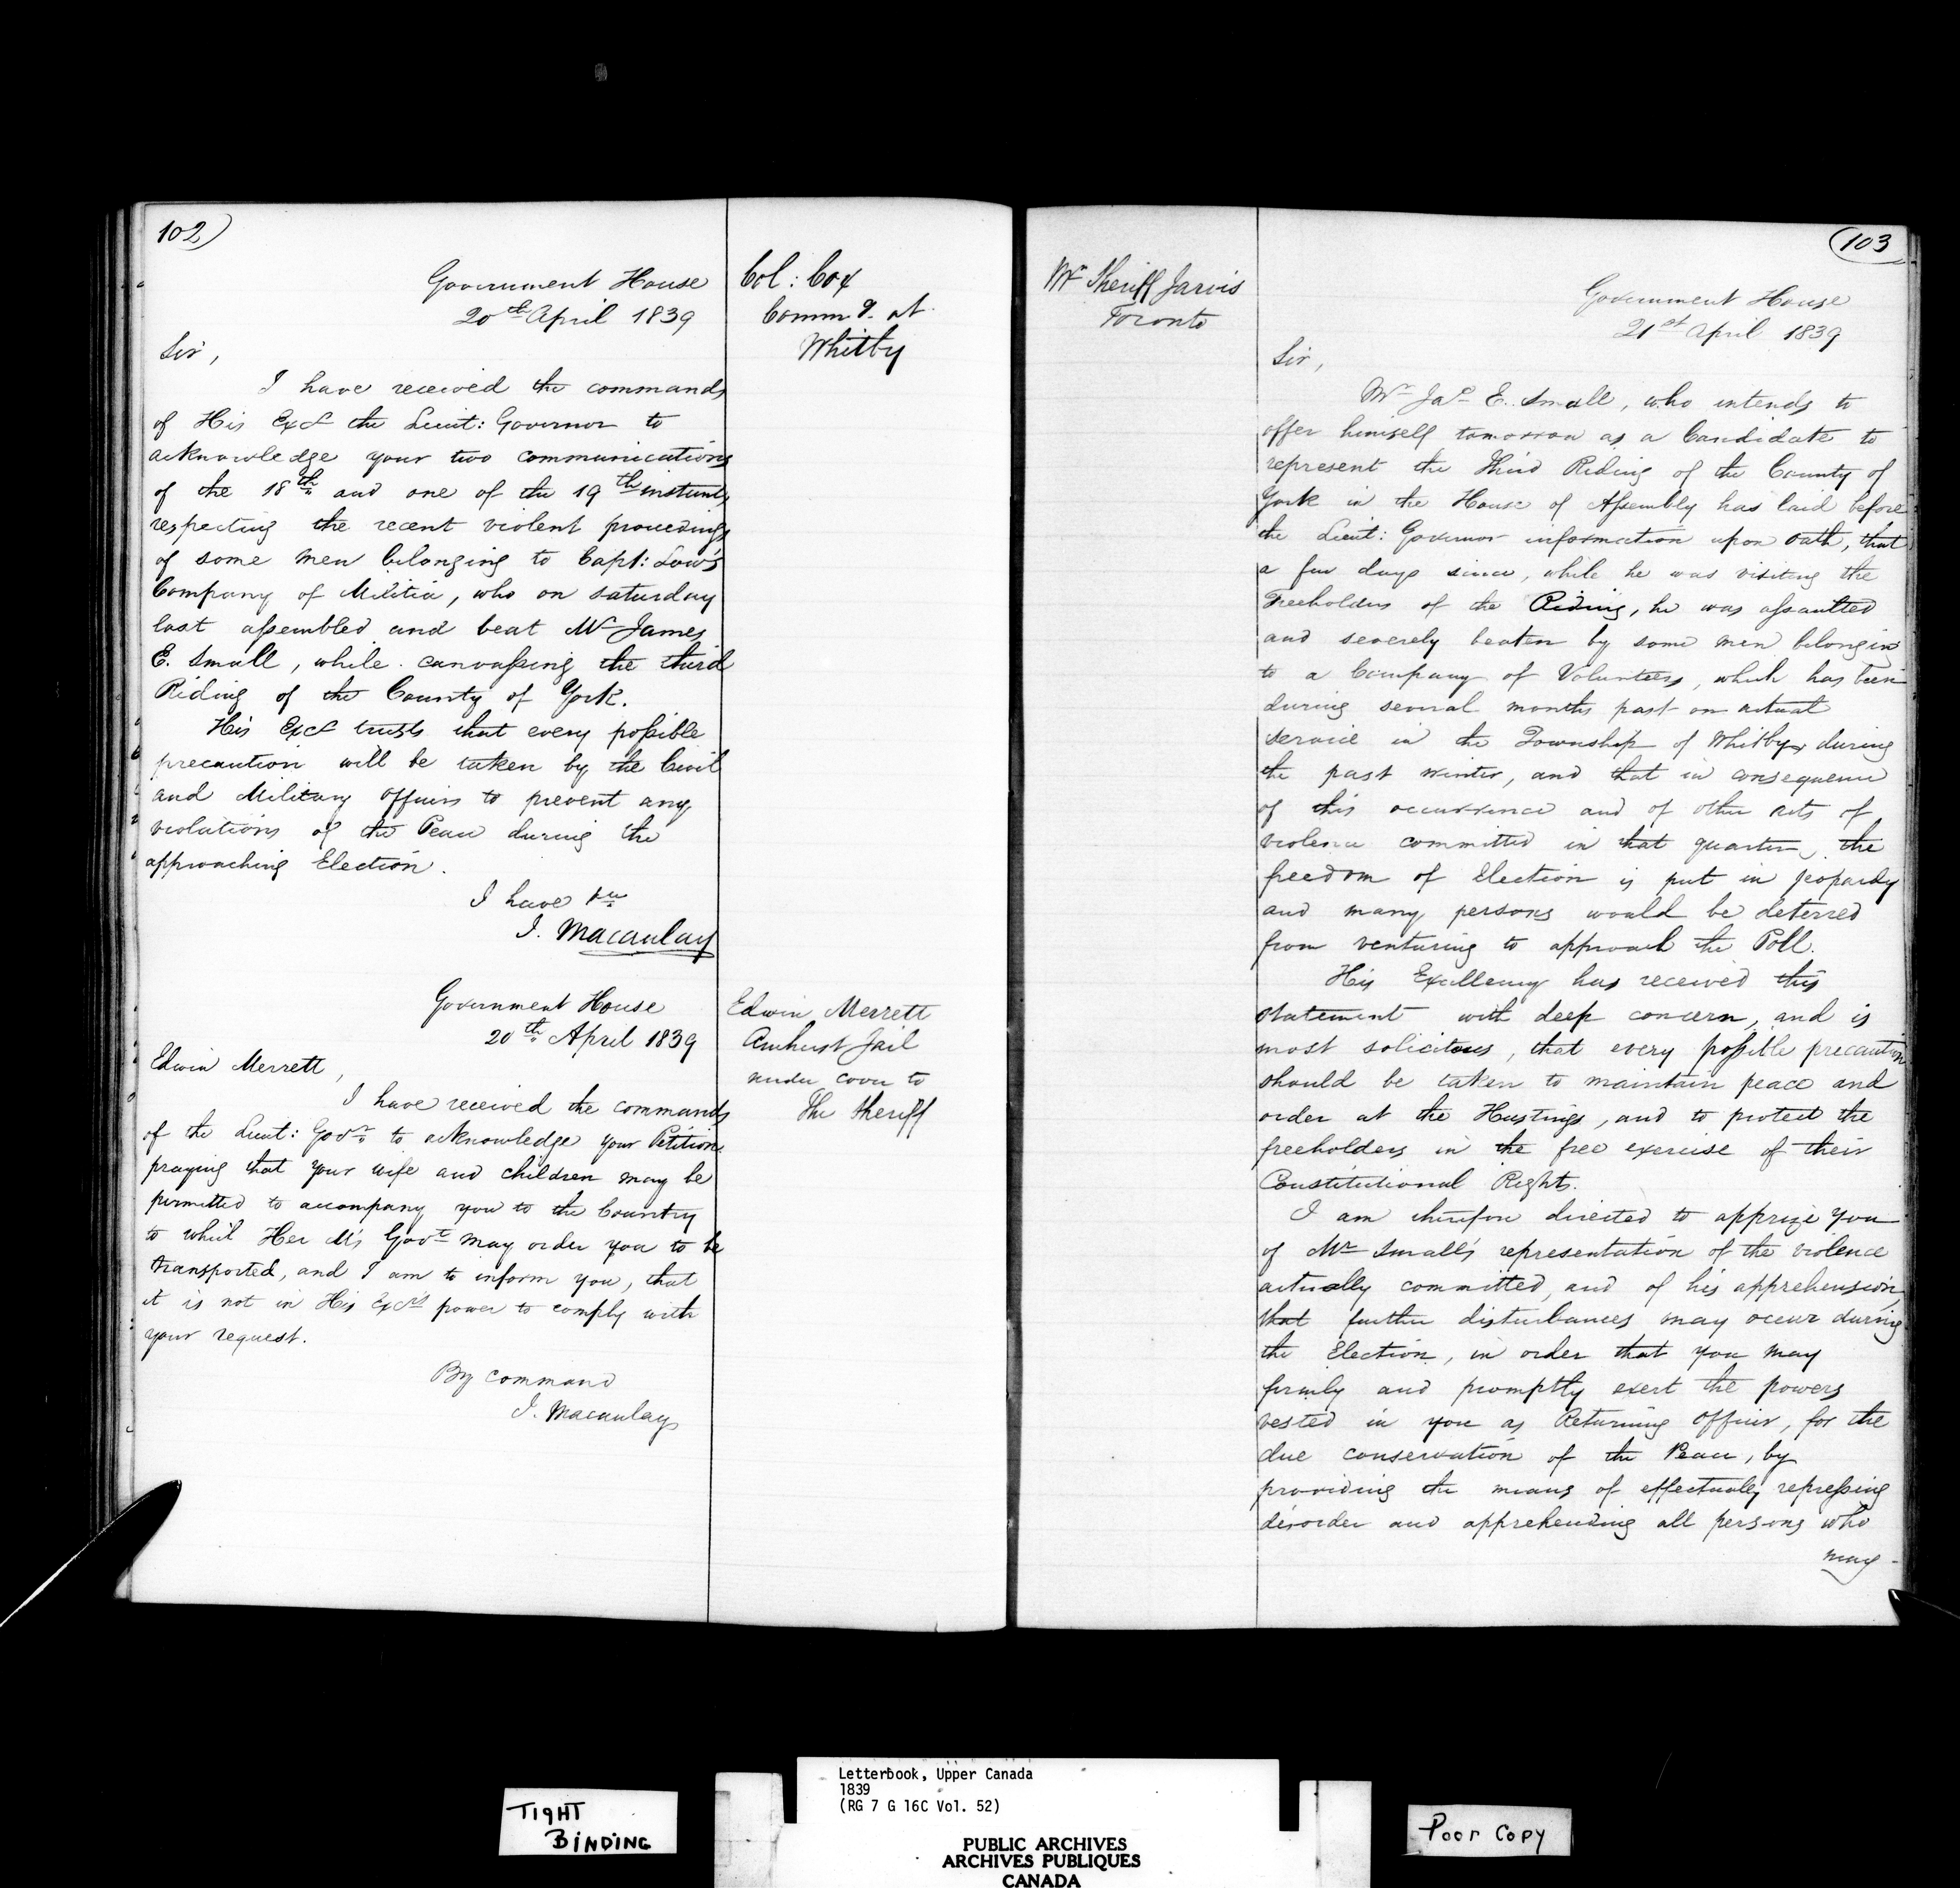 102)
Government House
20th April 1839
Col: Cox
Commg. at
Whitby
Sir,
I have received the commands
of His Excy the Lieut: Governor to
acknowledge your two communications
of the 18th and one of the 19th instant,
respecting the recent violent proceedings
of some men belonging to Capt: Low's
Company of Militia, who on saturday
last assembled and beat Mr James
E. Small, while canvassing the third
Riding of the County of York.
His Excy trusts that every possible
precaution will be taken by the Civil
and Military Officers to prevent any
violations of the Peace during the
approaching Election.
I have &c
J. Macaulay
Government House
20th April 1839
Edwin Merrett
Amherst Jail
under cover to
The Sheriff
Edwin Merrett,
I have received the commands
of the Lieut: Govr to acknowledge your Petition
praying that your wife and children may be
permitted to accompany you to the Country
to which Her M's Govt may order you to be
transported, and I am to inform you, that
it is not in His Excy's power to comply with
your request.
By command
J. Macaulay
103
Mr Sheriff Jarvis
Toronto
Government House
21st April 1839
Sir,
Mr Jas E. Small, who intends to
offer himself tomorrow as a Candidate to
represent the third Riding of the County of
York in the House of Assembly has laid before
the Lieut: Governor information upon oath, that
a few days since, while he was visiting the
Freeholders of the Riding, he was assaulted
and severely beaten by some men belonging
to a Company of Volunteers, which has been
during several months past on actual
service in the Township of Whitby during
the past winter, and that in consequence
of this occurrence and of other acts of
violence committed in that quarter, the
freedom of Election is put in jeopardy
and many persons would be deterred
from venturing to approach the Poll.
His Excellency has received this
statement with deep concern, and is
most solicitous, that every possible precaution
should be taken to maintain peace and
order at the Hustings, and to protect the
freeholders in the free exercise of their
Constitutional Rights.
I am therefore directed to apprize you
of Mr Small's representation of the violence
actually committed, and of his apprehension,
that further disturbances may occur during
the Election, in order that you may
firmly and promptly exert the powers
vested in you as Returning Officer, for the
due conservation of the Peace, by
providing the means of effectually repressing
disorder and apprehending all persons who
may
TIGHT
BINDING
Letterbook, Upper Canada
1839
(RG 7 G 16C Vol. 52)
PUBLIC ARCHIVES
ARCHIVES PUBLIQUES
CANADA
Poor Copy